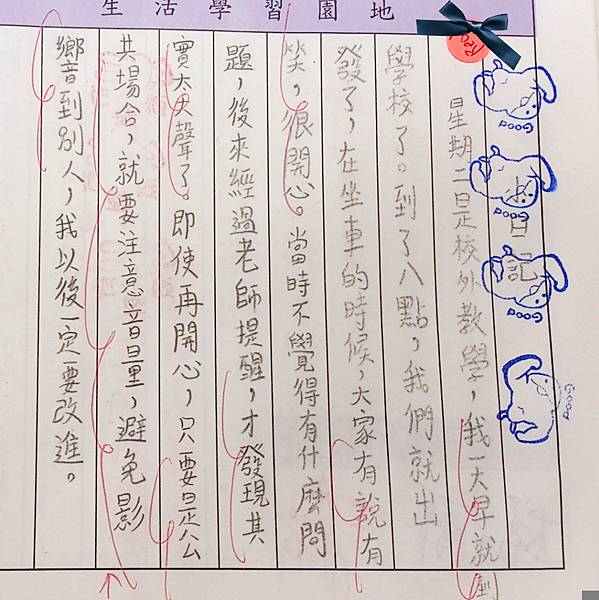 生活學習園地
小日記
星期二是校外教學，我一大早就到
學校了。到了八點，我們就出
發了，在坐車的時候，大家有說有
笑，很開心。當時不覺得有什麼問
題，後來經過老師提醒，才發現其
實太大聲了。即使再開心，只要是公
共場合，就要注意音量，避免影
響到別人，我以後一定要改進。
Good
Good
Good
Good